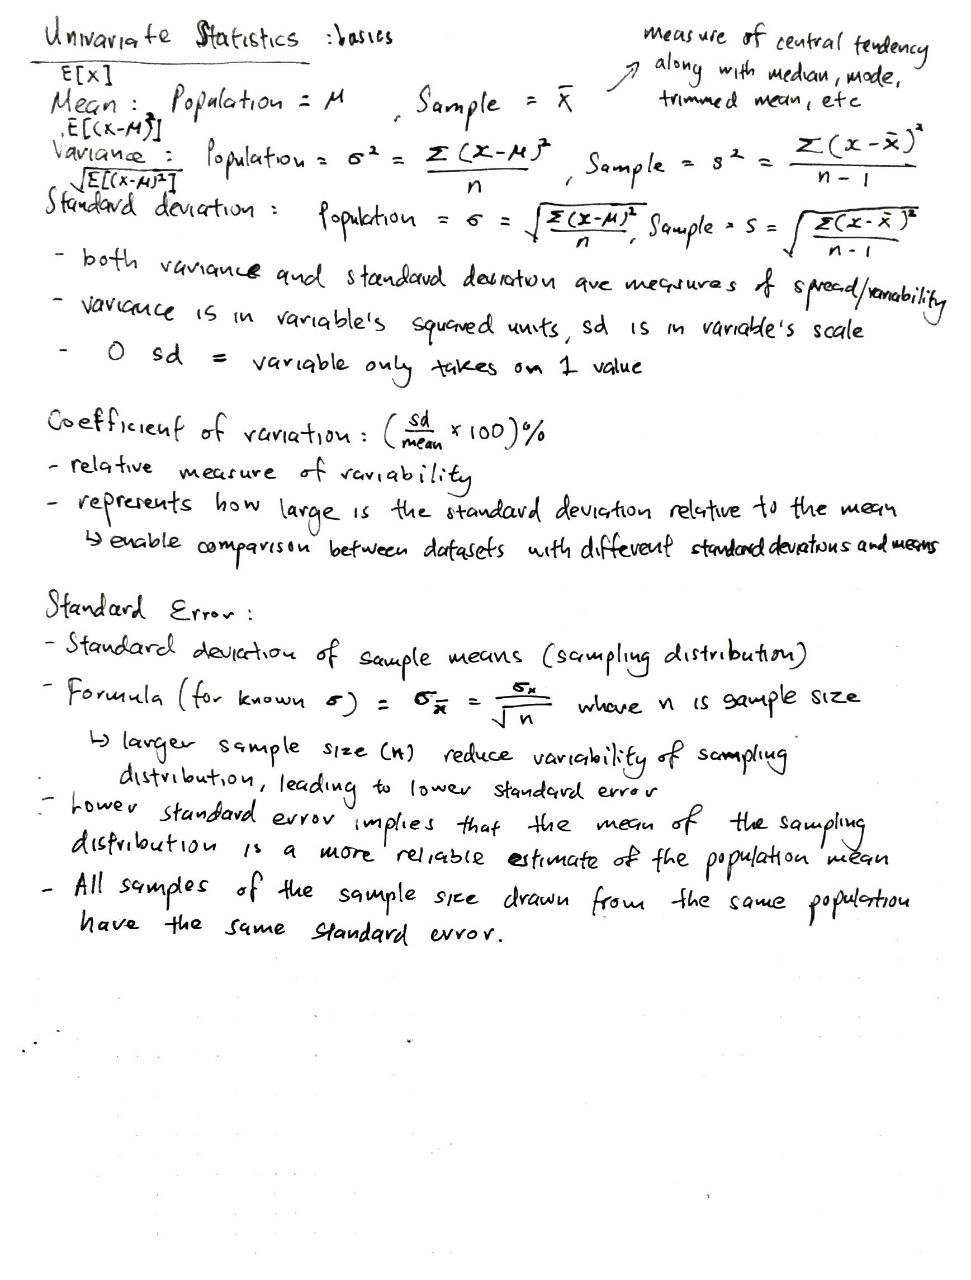 Univariate Statistics : basics
measure of central tendency
along with median, mode,
trimmed mean, etc
E[x]
Mean : Population = μ , Sample = x̄
E[(x-μ)²]
Variance : Population = σ² = Σ(x-μ)²/n , Sample = s² = Σ(x-x̄)²/n-1
√E[(x-μ)²]
Standard deviation : Population = σ = √Σ(x-μ)²/n , Sample = s = √Σ(x-x̄)²/n-1
- both variance and standard deviation are measures of spread/variability
- variance is in variable's squared units, sd is in variable's scale
- 0 sd = variable only takes on 1 value
Coefficient of variation : (sd/mean × 100)%
- relative measure of variability
- represents how large is the standard deviation relative to the mean
↳ enable comparison between datasets with different standard deviations and means
Standard Error :
- Standard deviation of sample means (sampling distribution)
- Formula (for known σ) = σx̄ = σx/√n where n is sample size
↳ larger sample size (n) reduce variability of sampling
distribution, leading to lower standard error
- Lower standard error implies that the mean of the sampling
distribution is a more reliable estimate of the population mean
- All samples of the sample size drawn from the same population
have the same standard error.